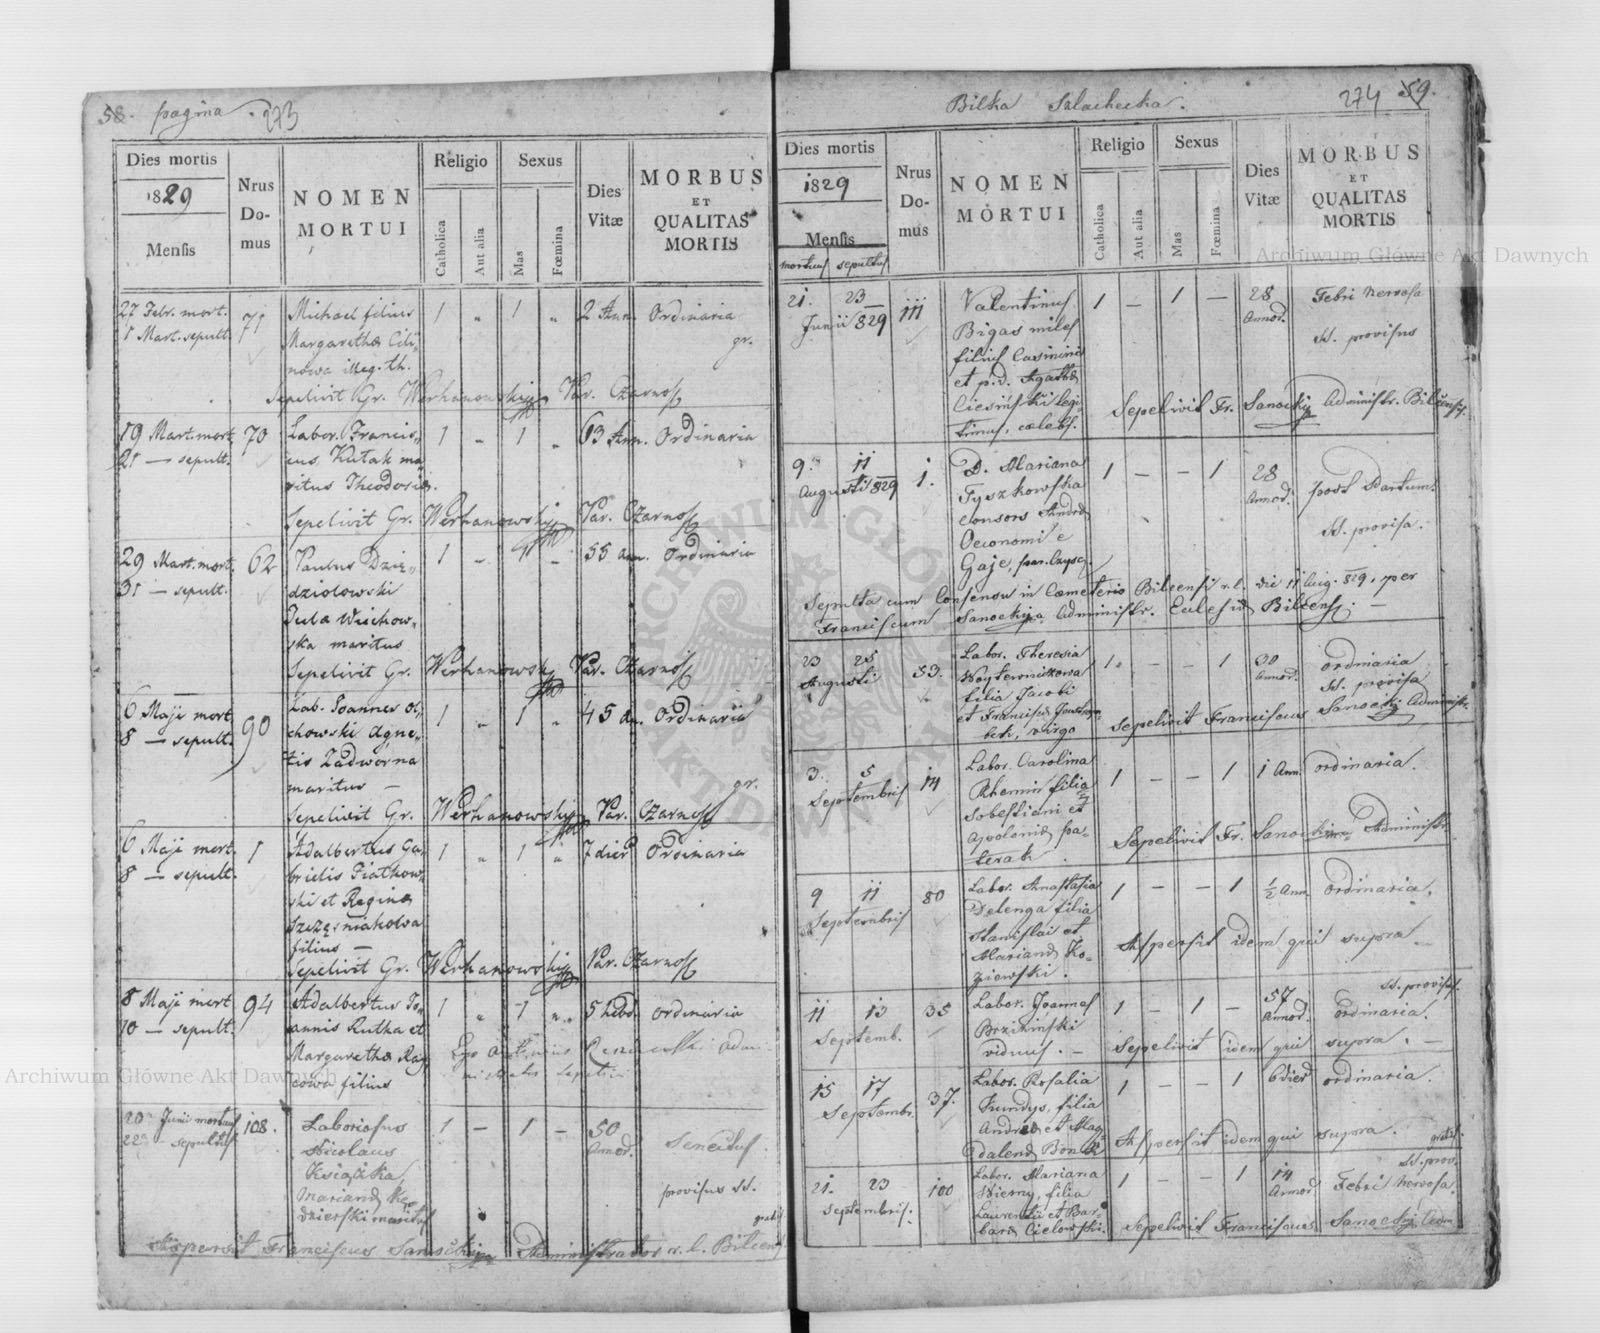 58. pagina. 273
Dies mortis
1829
Mensis
Nrus Do-mus
NOMEN
MORTUI
Religio
Catholica
Aut alia
Sexus
Mas
Fœmina
Dies
Vitæ
MORBUS
ET
QUALITAS
MORTIS
27 Febr. mort. 71 Michael filius 1 „ 1 „ 2 Ann. Ordinaria
1 Mart. sepult. Margaretha gr.
illeg. th.
Sepelivit Gr. Werhanowski Par. Czarnos
19 Mart. mort. 70 Labor. Francis- 1 „ 1 „ 63 Ann. Ordinaria
21 — sepult. cus Kutak ma-
ritus Theodosia.
Sepelivit Gr. Werhanowski Par. Czarnos
29 Mart. mort. 62 Paulus Dzię- 1 „ 1 „ 55 an. Ordinaria
31 — sepult. dziolowski
Jula
ska maritus
Sepelivit Gr. Werhanowski Par. Czarnos
6 Maji mort. 90 Lab. Joannes Ol- 1 „ 1 „ 45 an. Ordinaria
8 — sepult. chowski Agne-
tis Zadworna
maritus — gr.
Sepelivit Gr. Werhanowski Par. Czarnos
6 Maji mort. 1 Adalbertus Ga- 1 „ 1 „ 7 dier Ordinaria
8 — sepult. brielis Piatkow-
ski et Regina
Szczęśniakowa
filius —
Sepelivit Gr. Werhanowski Par. Czarnos
8 Maji mort. 94 Adalbertus Jo- 1 „ 1 „ 5 hebd. Ordinaria
10 — sepult. annis Rutka et
Margaretha Ray Ego
cowa filius
20 Junii mortuus 108. Laboriosus 1 — 1 — 50 Senectus.
22 sepultus Nicolaus Annor.
Książka,
Marianna provisus SS.
maritus gratis
Aspersit Franciscus Sanocki Administrator r. l. Bilcens.
Bilka Szlachecka. 274 59.
Dies mortis
1829
Mensis
mortuus sepultus
Nrus
Do-
mus
NOMEN
MORTUI
Religio
Catholica
Aut alia
Sexus
Mas
Fœmina
Dies
Vitæ
MORBUS
ET
QUALITAS
MORTIS
21. 23 111 Valentinus 1 — 1 — 28 Febri Nervosa
Junii 829 Bigas miles Annor.
filius Casimiri SS. provisus
et p.d. Agatha
legi- Sepelivit Fr. Sanocki Administr.
timus, cœlebs.
9. 11 1. D. Mariana 1 — — 1 28 post Partum.
Augusti 829 Tyszkowska Annor.
Consors Andreæ SS. provisa.
Oeconomi e
Gaje, par. Czysz.
Sepulta cum Consensu in Cœmeterio Bilcensi r.l. die 11 Aug. 829, per
Franciscum Sanocki Administr. Ecclesiæ Bilcens. —
23 25 53. Labor. Theresia 1. — — 1 30 ordinaria
Augusti filia Jacobi Annor. SS. provisa
et Francisca Sepelivit Franciscus Sanocki Administr.
virgo
3. 5 14 Labor. Carolina 1 — — 1 1 Ann. ordinaria.
Septembris filia
Sobestiani et
Apolonia Pa- Sepelivit Fr. Sanocki Administr.
terak.
9 11 80 Labor. Anastasia 1 — — 1 ½ Ann. ordinaria.
Septembris Delenga filia
Stanislai et Aspersit idem qui supra —
Marianna Ko-
ziewski.
11 13 35 Labor. Joannes 1 — 1 — 57 SS. provisus.
Septemb. Brzizinski Annor. ordinaria.
viduus. — Sepelivit idem qui supra. —
15 17 37. Labor. Rosalia 1 — — 1 6 dier ordinaria.
Septembr. Fundys, filia
Andrea et Mag- Aspersit idem qui supra.
dalena gratis.
21. 23 100 Labor. Mariana 1 — — 1 14 SS. prov.
Septembris. filia Annor. Febri Nervosa.
Laurentii et Bar-
bara Cielowski. Sepelivit Franciscus Sanocki Adm.
Archiwum Główne Akt Dawnych
Archiwum Główne Akt Dawnych
ARCHIWUM GŁÓWNE AKT DAWNYCH